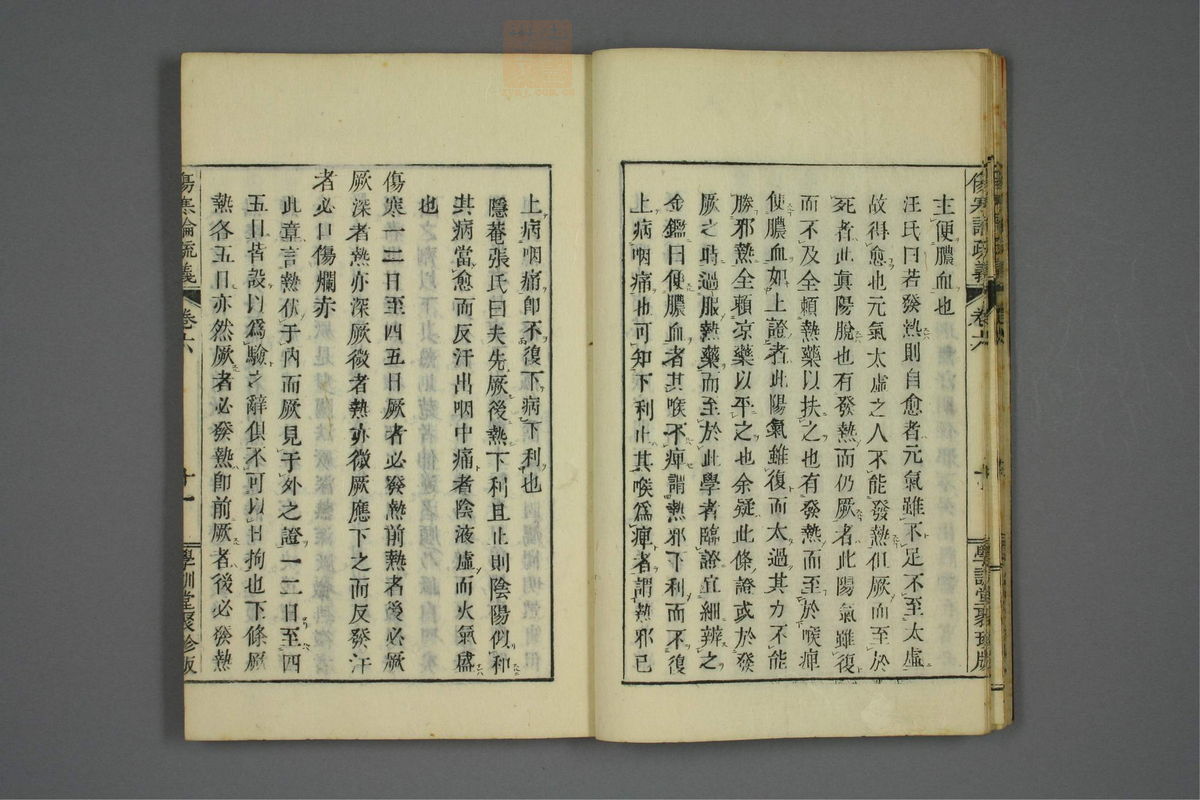 主便膿血也
汪氏曰若發熱則自愈者元氣雖不足不至太虛
故得愈也元氣太虛之人不能發熱但厥而至於
死者此眞陽脫也有發熱而仍厥者此陽氣雖復
而不及全賴熱藥以扶之也有發熱而至於喉痺
便膿血如上證者此陽氣雖復而太過其力不能
勝邪熱全賴凉藥以平之也余疑此條證或於發
厥之時過服熱藥而至於此學者臨證宜細辨之
金鑑曰便膿血者其喉不痺謂熱邪下利而不復
上病咽痛也可知下利止其喉爲痺者謂熱邪已
傷寒論疏義
卷六
學訓堂聚珍版
上病咽痛卽不復下病下利也
隱菴張氏曰夫先厥後熱下利且止則陰陽似和
其病當愈而反汗出咽中痛者陰液虛而火氣盛
也
傷寒一二日至四五日厥者必發熱前熱者後必厥
厥深者熱亦深厥微者熱亦微厥應下之而反發汗
者必口傷爛赤
此章言熱伏于內而厥見于外之證一二日至四
五日皆設以爲驗之辭俱不可以日拘也下條厥
熱各五日亦然厥者必發熱卽前厥者後必發熱
傷寒論疏義
卷六
十一
學訓堂聚珍版